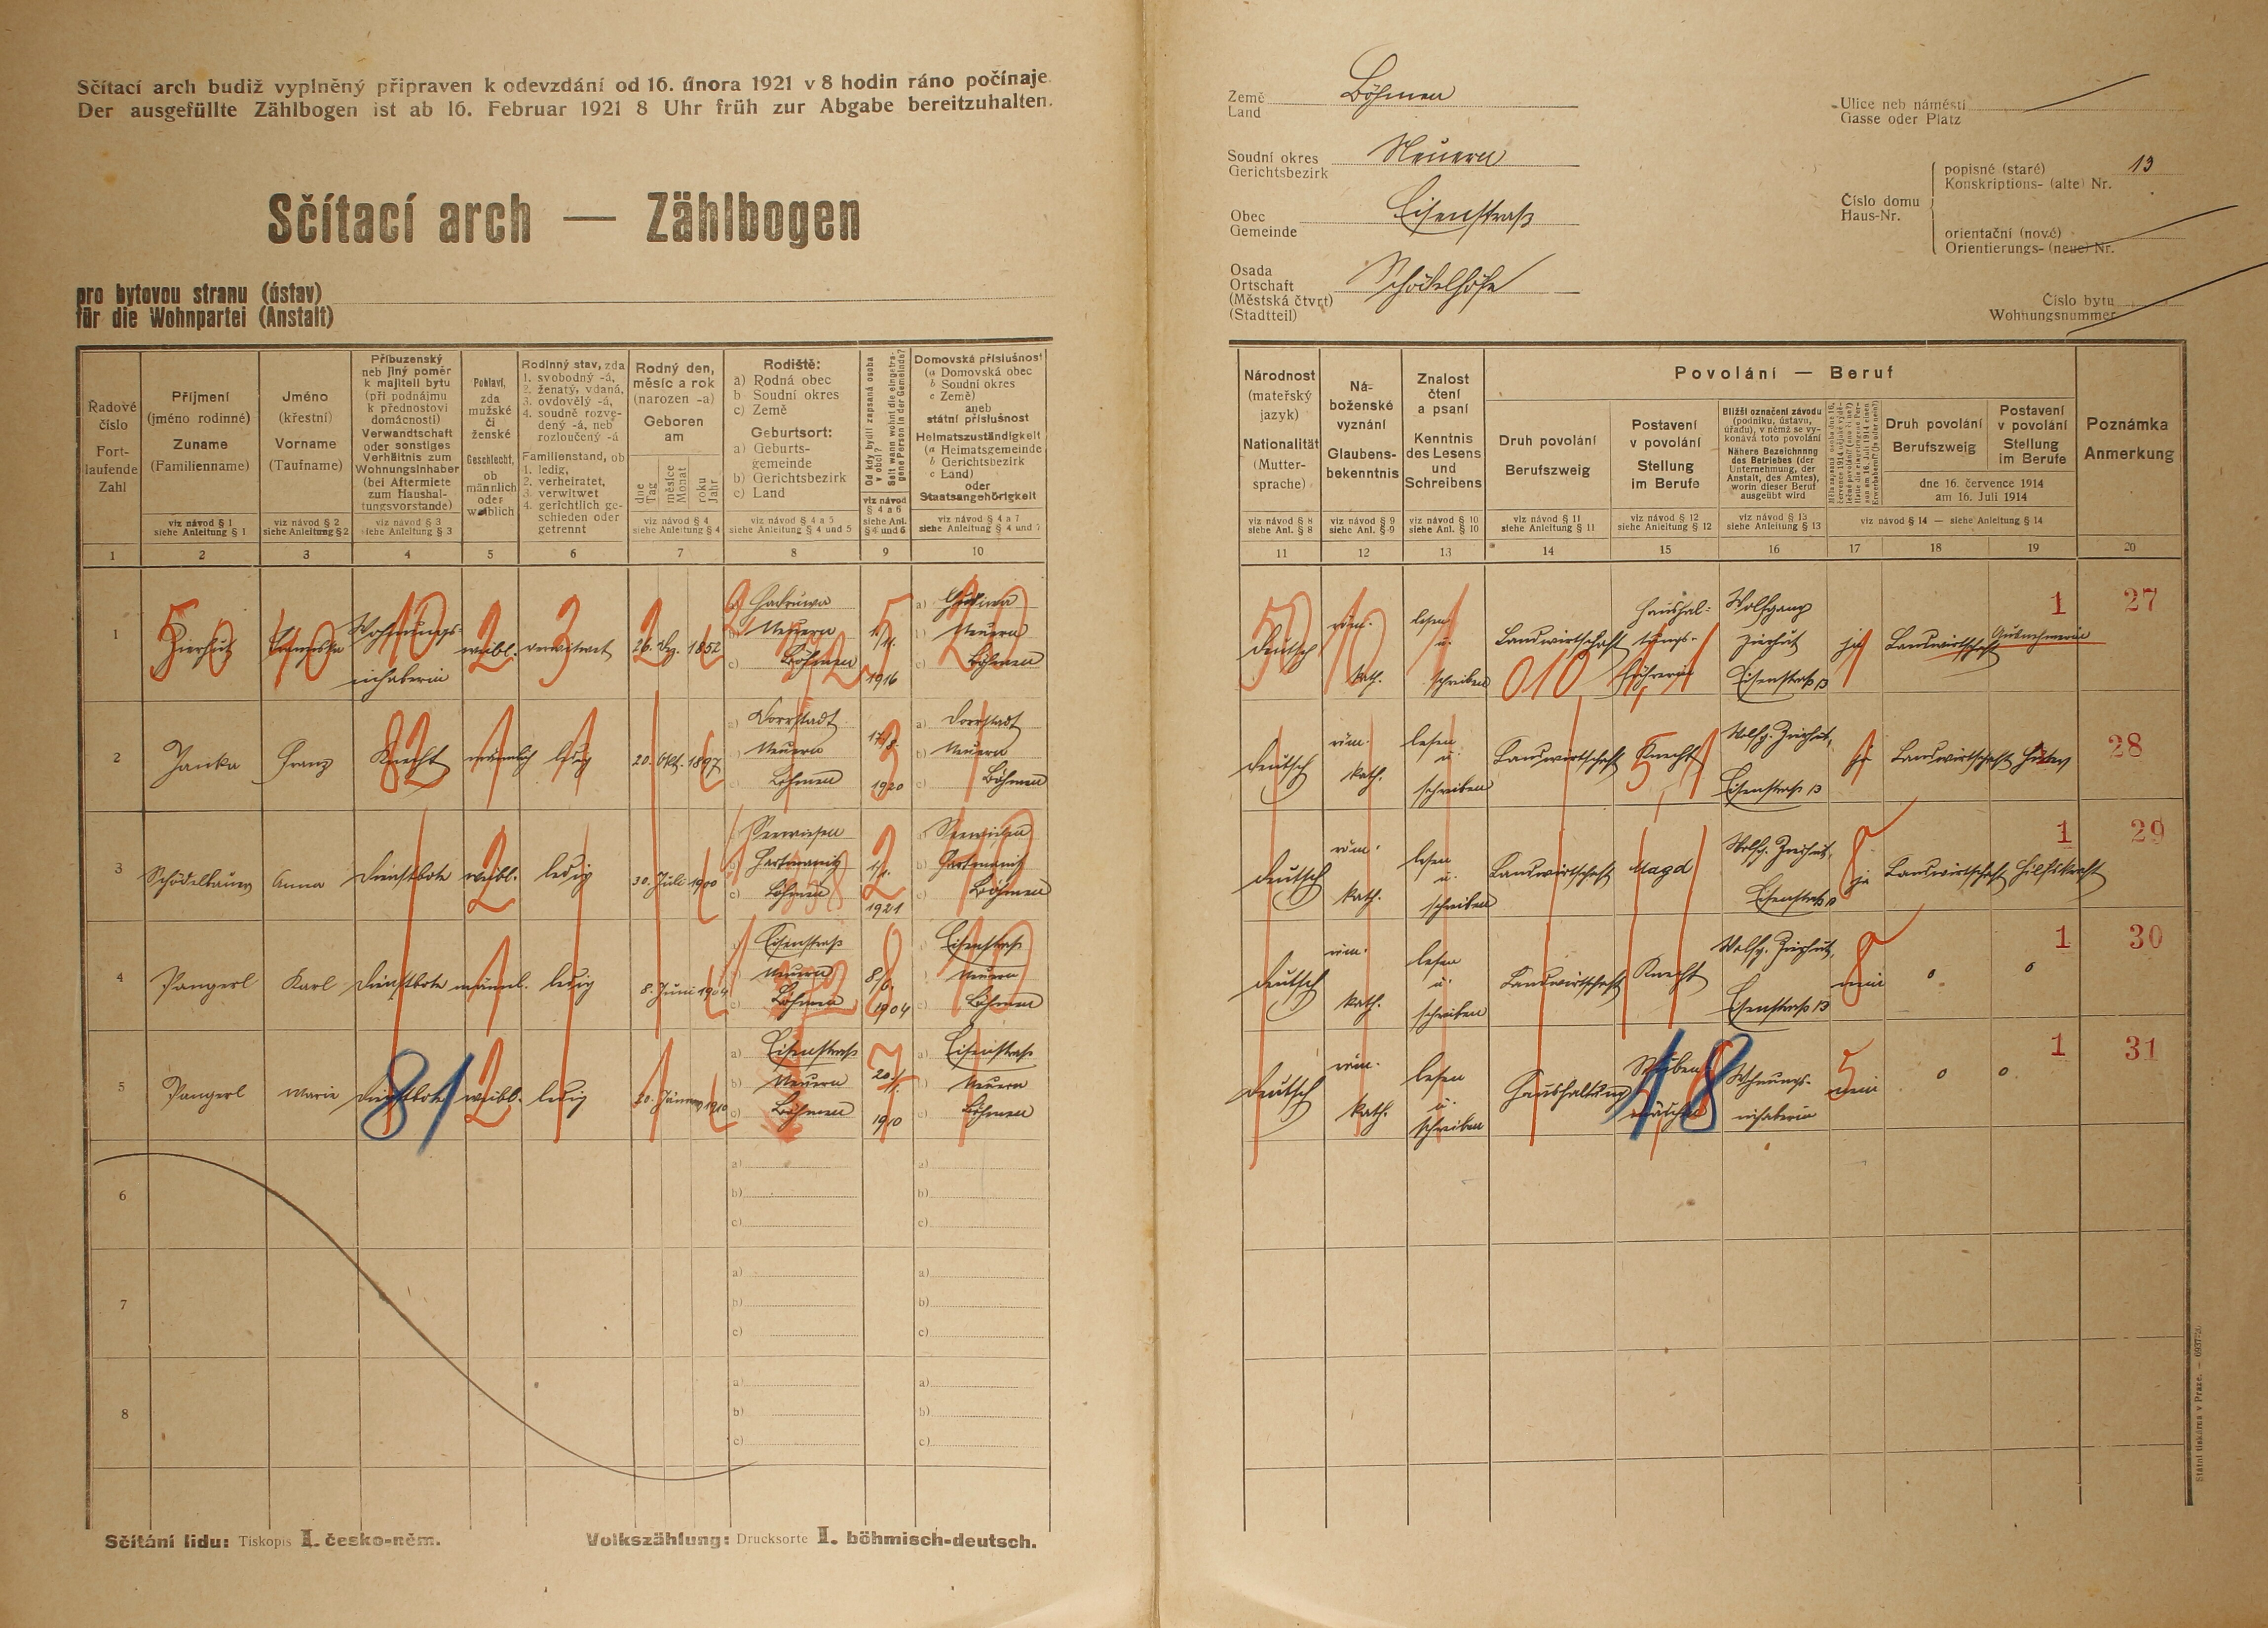 Sčítací arch budiž vyplněný připraven k odevzdání od 16. února 1921 v 8 hodin ráno počínaje.
Der ausgefüllte Zählbogen ist ab 16. Februar 1921 8 Uhr früh zur Abgabe bereitzuhalten.
Sčítací arch — Zählbogen
pro bytovou stranu (ústav)
für die Wohnpartei (Anstalt)
Země
Land
Böhmen
Soudní okres
Gerichtsbezirk
Neuern
Obec
Gemeinde
Eisenstraß
Osada
Ortschaft
(Městská čtvrt)
(Stadtteil)
Schödelhöfe
Ulice neb náměstí
Gasse oder Platz
Číslo domu
Haus-Nr.
popisné (staré)
Konskriptions- (alte) Nr.
13
orientační (nové)
Orientierungs- (neue) Nr.
Číslo bytu
Wohnungsnummer
Řadové
číslo
Fort-
laufende
Zahl
Příjmení
(jméno rodinné)
Zuname
(Familienname)
viz návod § 1
siehe Anleitung § 1
Jméno
(křestní)
Vorname
(Taufname)
viz návod § 2
siehe Anleitung § 2
Příbuzenský
neb jiný poměr
k majiteli bytu
(při podnájmu
k přednostovi
domácnosti)
Verwandtschaft
oder sonstiges
Verhältnis zum
Wohnungsinhaber
(bei Aftermiete
zum Haushal-
tungsvorstande)
viz návod § 3
siehe Anleitung § 3
Pohlaví,
zda
mužské
či
ženské
Geschlecht,
ob
männlich
oder
weiblich
Rodinný stav, zda
1. svobodný -á,
2. ženatý, vdaná,
3. ovdovělý -á,
4. soudně rozve-
dený -á, neb
rozloučený -á
Familienstand, ob
1. ledig,
2. verheiratet,
3. verwitwet
4. gerichtlich ge-
schieden oder
getrennt
Rodný den,
měsíc a rok
(narozen -a)
Geboren
am
dne
Tag
měsíce
Monat
roku
Jahr
viz návod § 4
siehe Anleitung § 4
Rodiště:
a) Rodná obec
b) Soudní okres
c) Země
Geburtsort:
a) Geburts-
gemeinde
b) Gerichtsbezirk
c) Land
viz návod § 4 a 5
siehe Anleitung § 4 und 5
Od kdy bydlí zapsaná osoba
v obci?
Seit wann wohnt die eingetra-
gene Person in der Gemeinde?
viz návod
§ 4 a 6
siehe Anl.
§ 4 und 6
Domovská příslušnost
(a Domovská obec
b Soudní okres
c Země)
aneb
státní příslušnost
Heimatszuständigkeit
(a Heimatsgemeinde
b Gerichtsbezirk
c Land)
oder
Staatsangehörigkeit
viz návod § 4 a 7
siehe Anleitung § 4 und 7
Národnost
(mateřský
jazyk)
Nationalität
(Mutter-
sprache)
viz návod § 8
siehe Anl. § 8
Ná-
boženské
vyznání
Glaubens-
bekenntnis
viz návod § 9
siehe Anl. § 9
Znalost
čtení
a psaní
Kenntnis
des Lesens
und
Schreibens
viz návod § 10
siehe Anl. § 10
Povolání — Beruf
Druh povolání
Berufszweig
viz návod § 11
siehe Anleitung § 11
Postavení
v povolání
Stellung
im Berufe
viz návod § 12
siehe Anleitung § 12
Bližší označení závodu
(podniku, ústavu,
úřadu), v němž se vy-
konává toto povolání
Nähere Bezeichnung
des Betriebes (der
Unternehmung, der
Anstalt, des Amtes),
worin dieser Beruf
ausgeübt wird
viz návod § 13
siehe Anleitung § 13
Druh povolání
Berufszweig
Postavení
v povolání
Stellung
im Berufe
dne 16. července 1914
am 16. Juli 1914
viz návod § 14 — siehe Anleitung § 14
Poznámka
Anmerkung
1 2 3 4 5 6 7 8 9 10 11 12 13 14 15 16 17 18 19 20
1 Zierhut Franziska Wohnungs-
inhaberin weibl. verwitwet 26. Dz. 1852
Neuern
Böhmen
1/11. 1916
Neuern
Böhmen
deutsch röm. kath. lesen u. schreiben Landwirtschaft Haushal-
tungs-
führerin
Wolfgang
Zierhut
Eisenstraß 13
ja Landwirtschaft Ausnehmerin 1 27
2 Janka Franz Knecht männlich ledig 20. Okt. 1897
a) Dorrstadt
Neuern
Böhmen
1920
a) Dorrstadt
b) Neuern
c) Böhmen
deutsch röm. kath. lesen u. schreiben Landwirtschaft Knecht
Wolfg. Zierhut,
Eisenstraß 13
ja Landwirtschaft 28
3 Schödelbauer Anna Dienstbote weibl. ledig 30. Juli 1900
Seewiesen
Hartmanitz
Böhmen
1921
Seewiesen
Hartmanitz
Böhmen
deutsch röm. kath. lesen u. schreiben Landwirtschaft Magd
Wolfg. Zierhut,
Eisenstraß 13
ja Landwirtschaft Hilfskraft 1 29
4 Pangerl Karl Dienstbote männl. ledig 8. Juni 1904
Eisenstraß
Neuern
Böhmen
8/6. 1904
Eisenstraß
Neuern
Böhmen
deutsch röm. kath. lesen u. schreiben Landwirtschaft Knecht
Wolfg. Zierhut,
Eisenstraß 13
nein 0 0 1 30
5 Pangerl Marie Dienstbote weibl. ledig 20. Jänner 1910
a) Eisenstraß
b) Neuern
c) Böhmen
20./1. 1910
a) Eisenstraß
Neuern
Böhmen
deutsch röm. kath. lesen u. schreiben Haushaltung
Wohnungs-
inhaberin
nein 0 0 1 31
6
a)
b)
c)
a)
b)
c)
7
a)
b)
c)
a)
b)
c)
8
a)
b)
c)
a)
b)
c)
Sčítání lidu: Tiskopis I. česko-něm.
Volkszählung: Drucksorte I. böhmisch-deutsch.
Státní tiskárna v Praze.